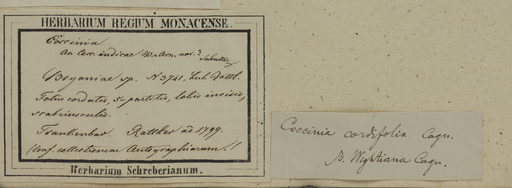 HERBARIUM REGIUM MONACENSE.
Coccinia
an Cocc. indicae W. & Arn. var.?
Bryoniae sp. N. 3741.
Foliis cordatis, 5-partitis, lobis incisis,
scabriusculis.
Trankenbar. Rottler ad. 1799.
(conf. collectionem Autographarum.!!
Herbarium Schreberianum.
Coccinia cordifolia Cogn.
β. Wightiana Cogn.